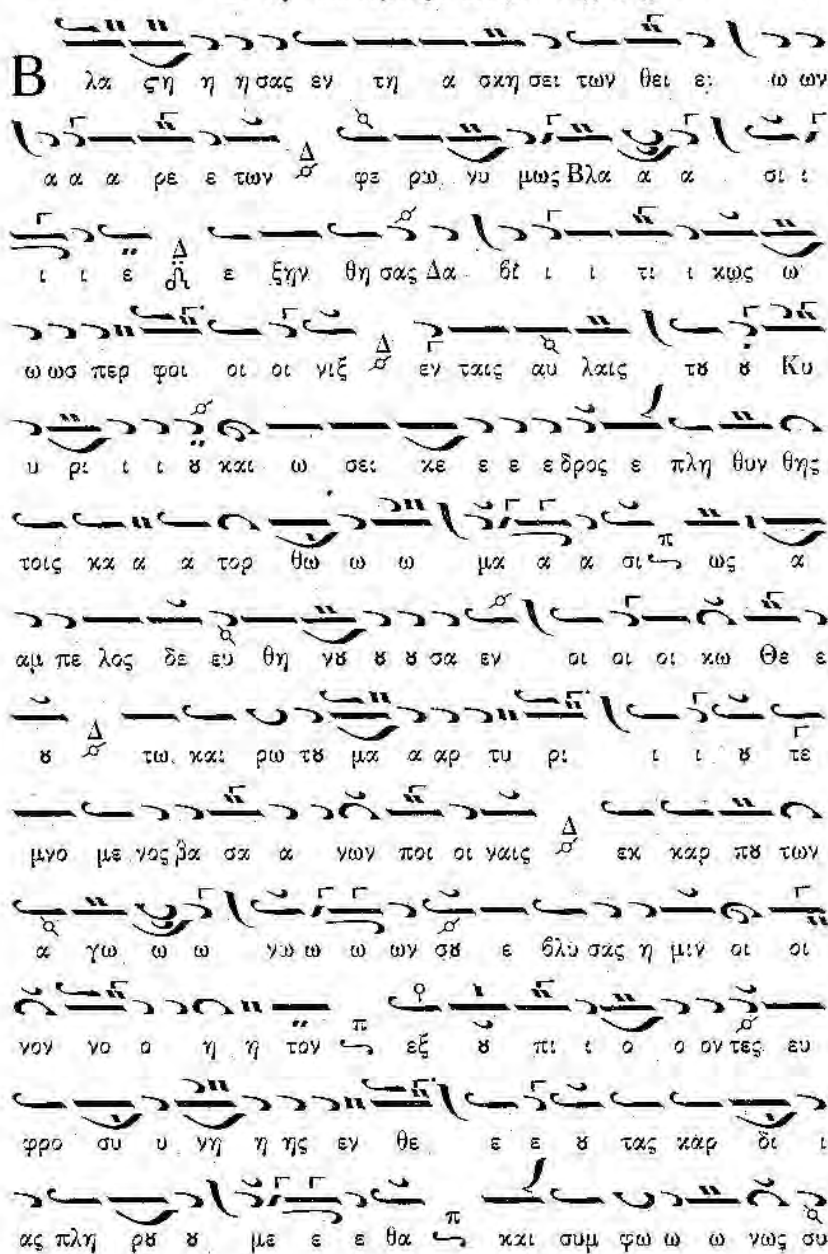 Β λα ϛη η η σας εν τη α σκη σει των θει ει ω ων
α α α ρε ε των Δ φε ρω νυ μως Βλα α α σι ι
ι ι ε Δ ε ξην θη σας Δα βι ι ι τι ι κως ω
ω ωσ περ φοι οι οι νιξ Δ εν ταις αυ λαις τȣ ȣ Κυ
υ ρι ι ι ȣ και ω σει κε ε ε ε δρος ε πλη θυν θης
τοις κα α α τορ θω ω ω μα α α σι π ως α
αμ πε λος δε ευ θη νȣ ȣ ȣ σα εν οι οι οι κω Θε ε
ȣ Δ τω και ρω τȣ μα α αρ τυ ρι ι ι ȣ τε
μνο με νος βα σα α νων ποι οι ναις Δ εκ καρ πȣ των
α γω ω ω νω ω ω ων σȣ ε βλυ σας η μιν οι οι
νον νο ο η η τον π εξ ȣ πι ι ο ο ον τες ευ
φρο συ υ νη η ης εν θε ε ε ȣ τας καρ δι ι
ας πλη ρȣ ȣ με ε ε θα π και συμ φω ω ω νως συ